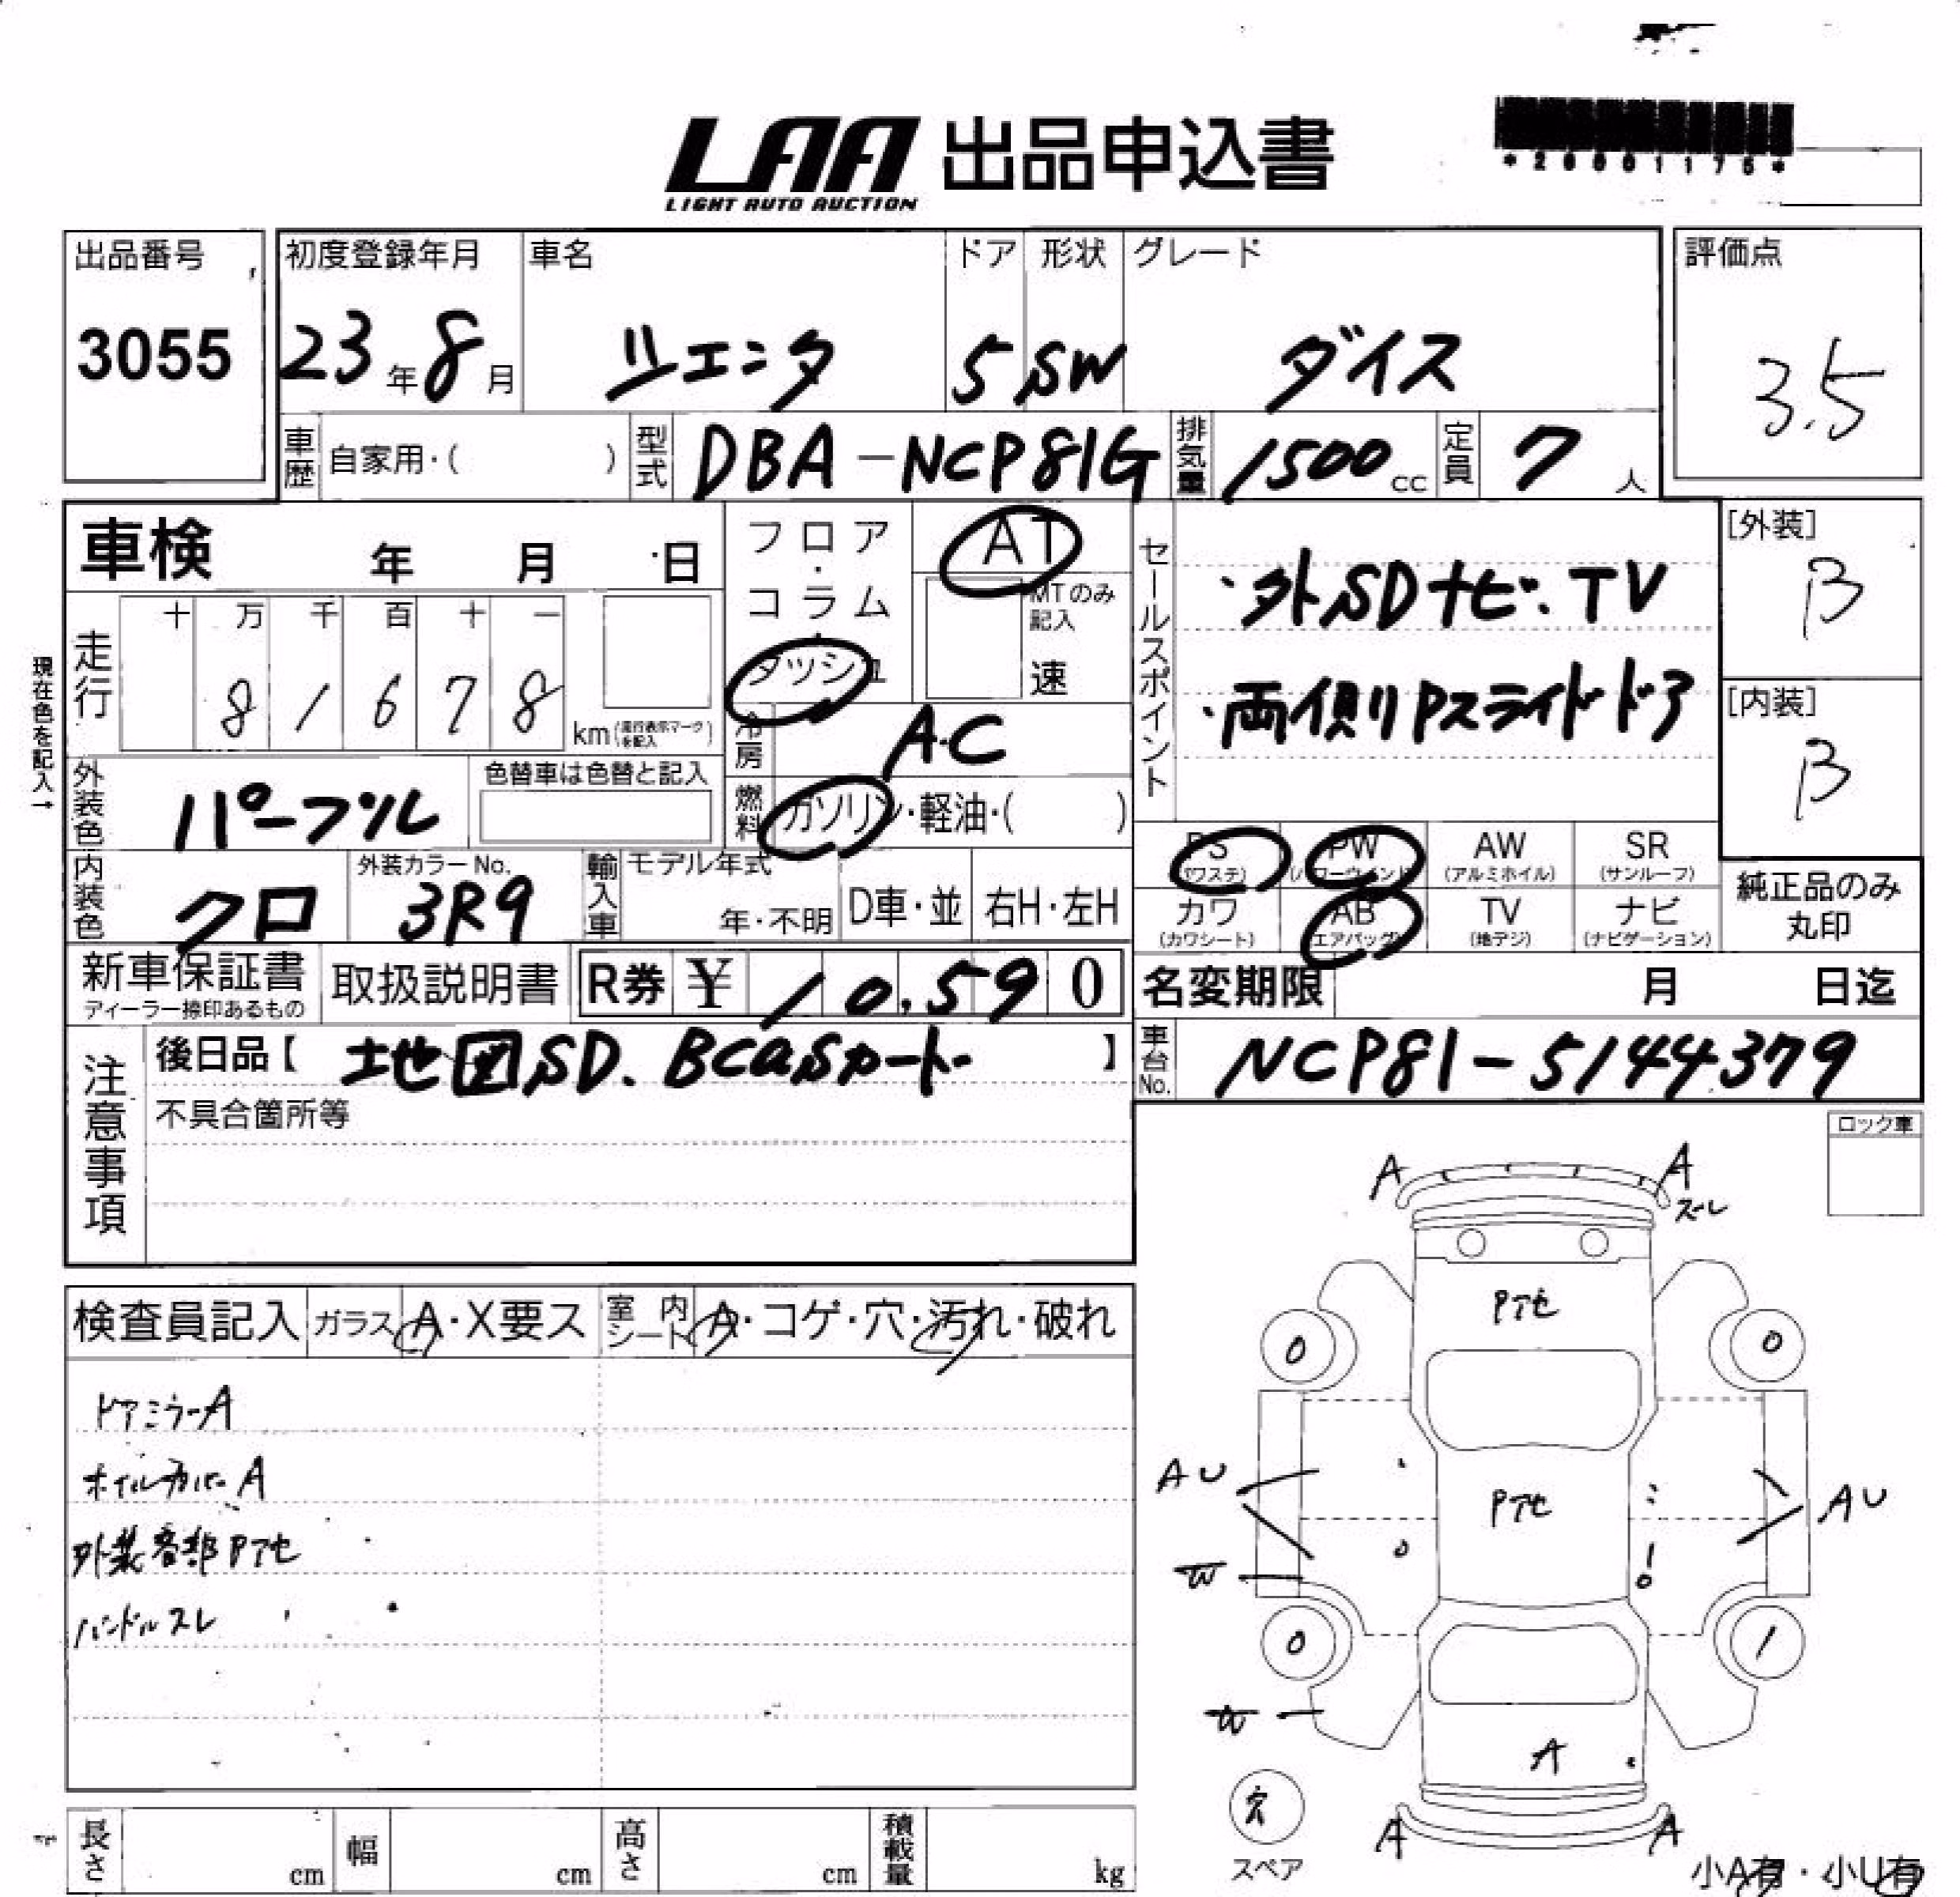 LAA 出品申込書
LIGHT AUTO AUCTION
*20001175*
出品番号 初度登録年月 車名 ドア 形状 グレード 評価点
3055 23年8月 シエンタ 5 SW ダイス 3.5
車歴 自家用・( ) 型式 DBA-NCP81G 排気量 1500cc 定員 7人
車検 年 月 日
フロア・コラム・ダッシュ
AT
MTのみ記入
速
セールスポイント
・外SDナビ.TV
・両側Pスライドドア
[外装]
B
[内装]
B
現在色を記入→
走行 十 万 千 百 十 一
8 1 6 7 8
km(走行表示マークを記入)
冷房 AC
外装色 パープル 色替車は色替と記入
燃料 ガソリン・軽油・( )
PS (パワステ) PW (パワーウインド) AW (アルミホイル) SR (サンルーフ)
カワ (カワシート) AB (エアバッグ) TV (地デジ) ナビ (ナビゲーション)
純正品のみ丸印
内装色 クロ 外装カラーNo. 3R9 輸入車 モデル年式 年・不明 D車・並 右H・左H
新車保証書 ディーラー捺印あるもの 取扱説明書 R券 ¥ 10,590
名変期限 月 日迄
注意事項
後日品【 地図SD. BCaSカード 】
車台No. NCP81-5144379
不具合箇所等
ロック車
検査員記入 ガラス A・X要ス 室内シート A・コゲ・穴・汚れ・破れ
ドアミラーA
ホイルカバーA
外装各部Pアセ
ハンドルスレ
A A
スレ
Pアセ
0 0
AU Pアセ AU
W
0 1
W
A
スペア
A A
小A有・小U有
長さ cm 幅 cm 高さ cm 積載量 kg